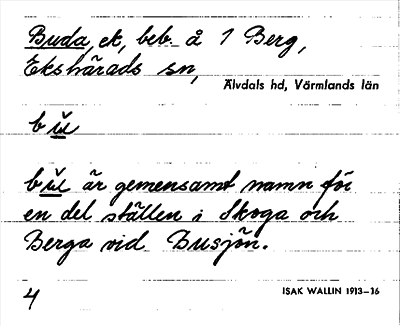 Buda, ek, beb. å 1 Berg,
Ekshärads sn,
Älvdals hd, Värmlands län
bu̇
bu̇ är gemensamt namn för
en del ställen i Skoga och
Berga vid Busjön.
4
ISAK WALLIN 1913-16